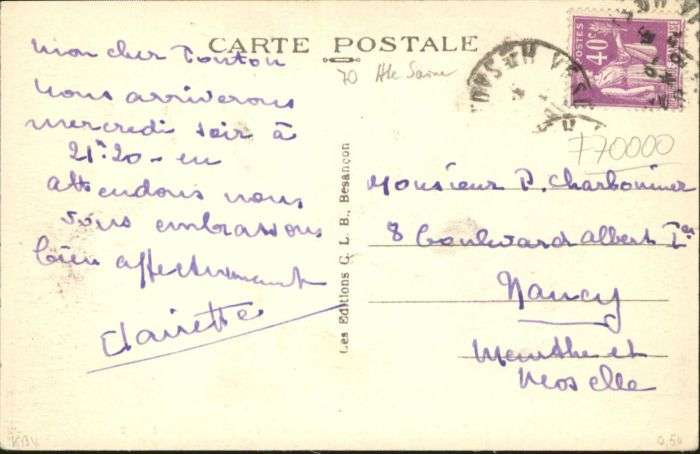 CARTE POSTALE
70 Hte Saone
mon cher Tonton
nous arriverons
mercredi soir à
21h20 - en
attendant nous
vous embrassons
bien affectueusement
Clairette
Les Editions C. L. B., Besançon
POSTES 40c
T70000
Monsieur P. Charbonnier
8 boulevard albert Ier
Nancy
Meurthe et
Moselle
KBV
0,50